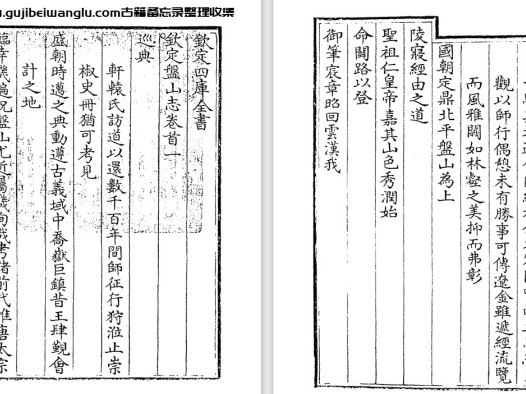 .gujibeiwanglu.com古籍备忘录整理收集
欽定四庫全書
欽定盤山志卷首一
巡典
軒轅氏訪道以還數千百年間師征行狩涖止崇
椒史冊猶可考見
盛朝時邁之典動遵古義域中喬嶽巨鎮昔王肆覲會
計之地
臨幸幾遍況盤山尤近屬畿甸哉考諸前代惟唐太宗
觀以師行偶憩未有勝事可傳遼金雖遞經流覽
而風雅闕如林壑之美抑而弗彰
國朝定鼎北平盤山為上
陵寢經由之道
聖祖仁皇帝嘉其山色秀潤始
命闢路以登
御筆宸章昭回雲漢我